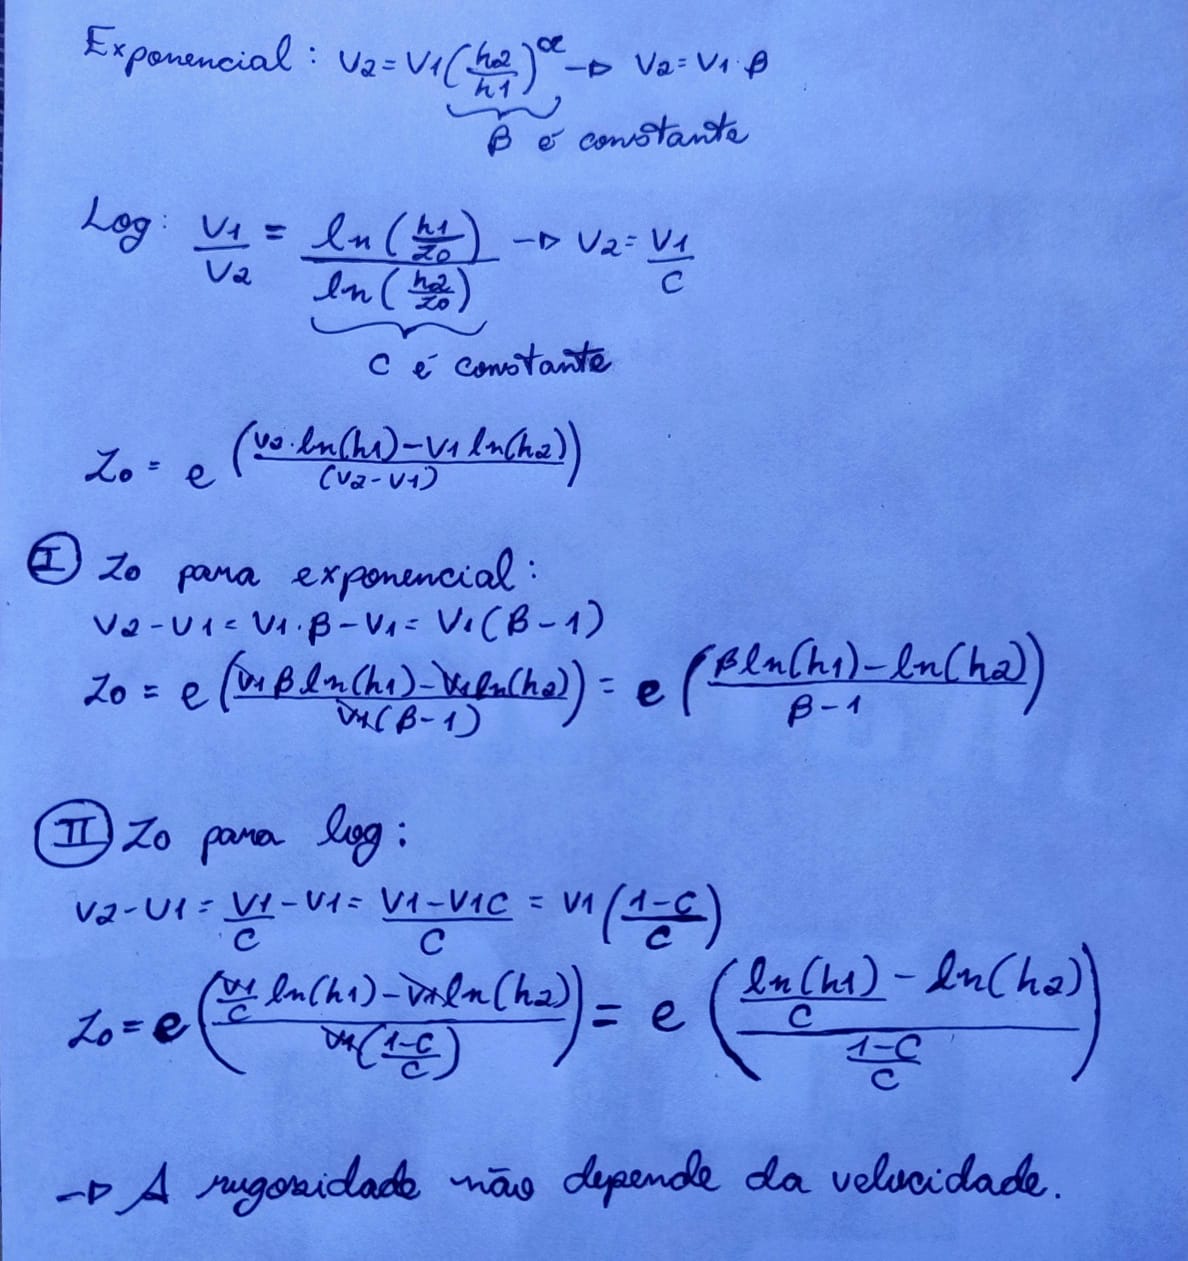 Exponencial: V2 = V1 (h2/h1)^α → V2 = V1 · β
β é constante
Log: V1/V2 = ln(h1/Z0) / ln(h2/Z0) → V2 = V1/C
C é constante
Z0 = e ((V2·ln(h1) − V1 ln(h2)) / (V2 − V1))
I Z0 para exponencial:
V2 − V1 = V1·β − V1 = V1(β − 1)
Z0 = e ((V1 β ln(h1) − V1 ln(h2)) / (V1(β − 1))) = e ((β ln(h1) − ln(h2)) / (β − 1))
II Z0 para log:
V2 − V1 = V1/C − V1 = (V1 − V1C)/C = V1 ((1−C)/C)
Z0 = e ((V1/C ln(h1) − V1 ln(h2)) / (V1((1−C)/C))) = e ((ln(h1)/C − ln(h2)) / ((1−C)/C))
→ A rugosidade não depende da velocidade.